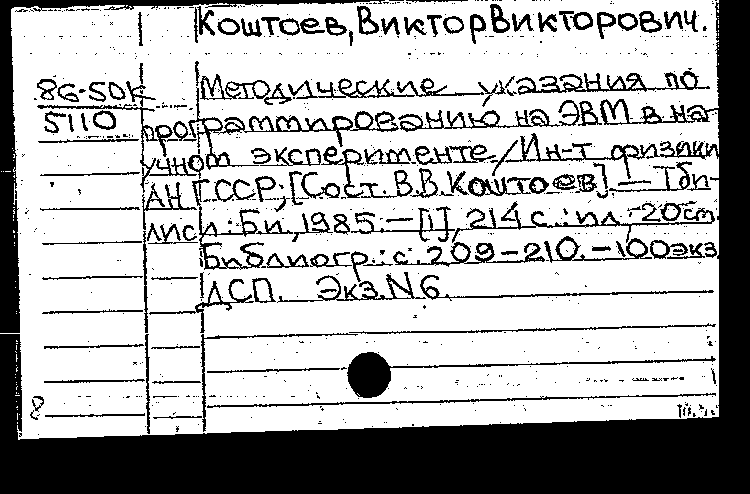 Коштоев, Виктор Викторович.
86-50К Методические указания по
5110 программированию на ЭВМ в на-
учном эксперименте/Ин-т физики
АН ГССР; [Сост. В.В. Коштоев]. — Тби-
лиси: Б.и., 1985. — [1], 214 с.: ил; 20 см.
Библиогр.: с. 209-210. — 100 экз.
ДСП. Экз. N 6.
8